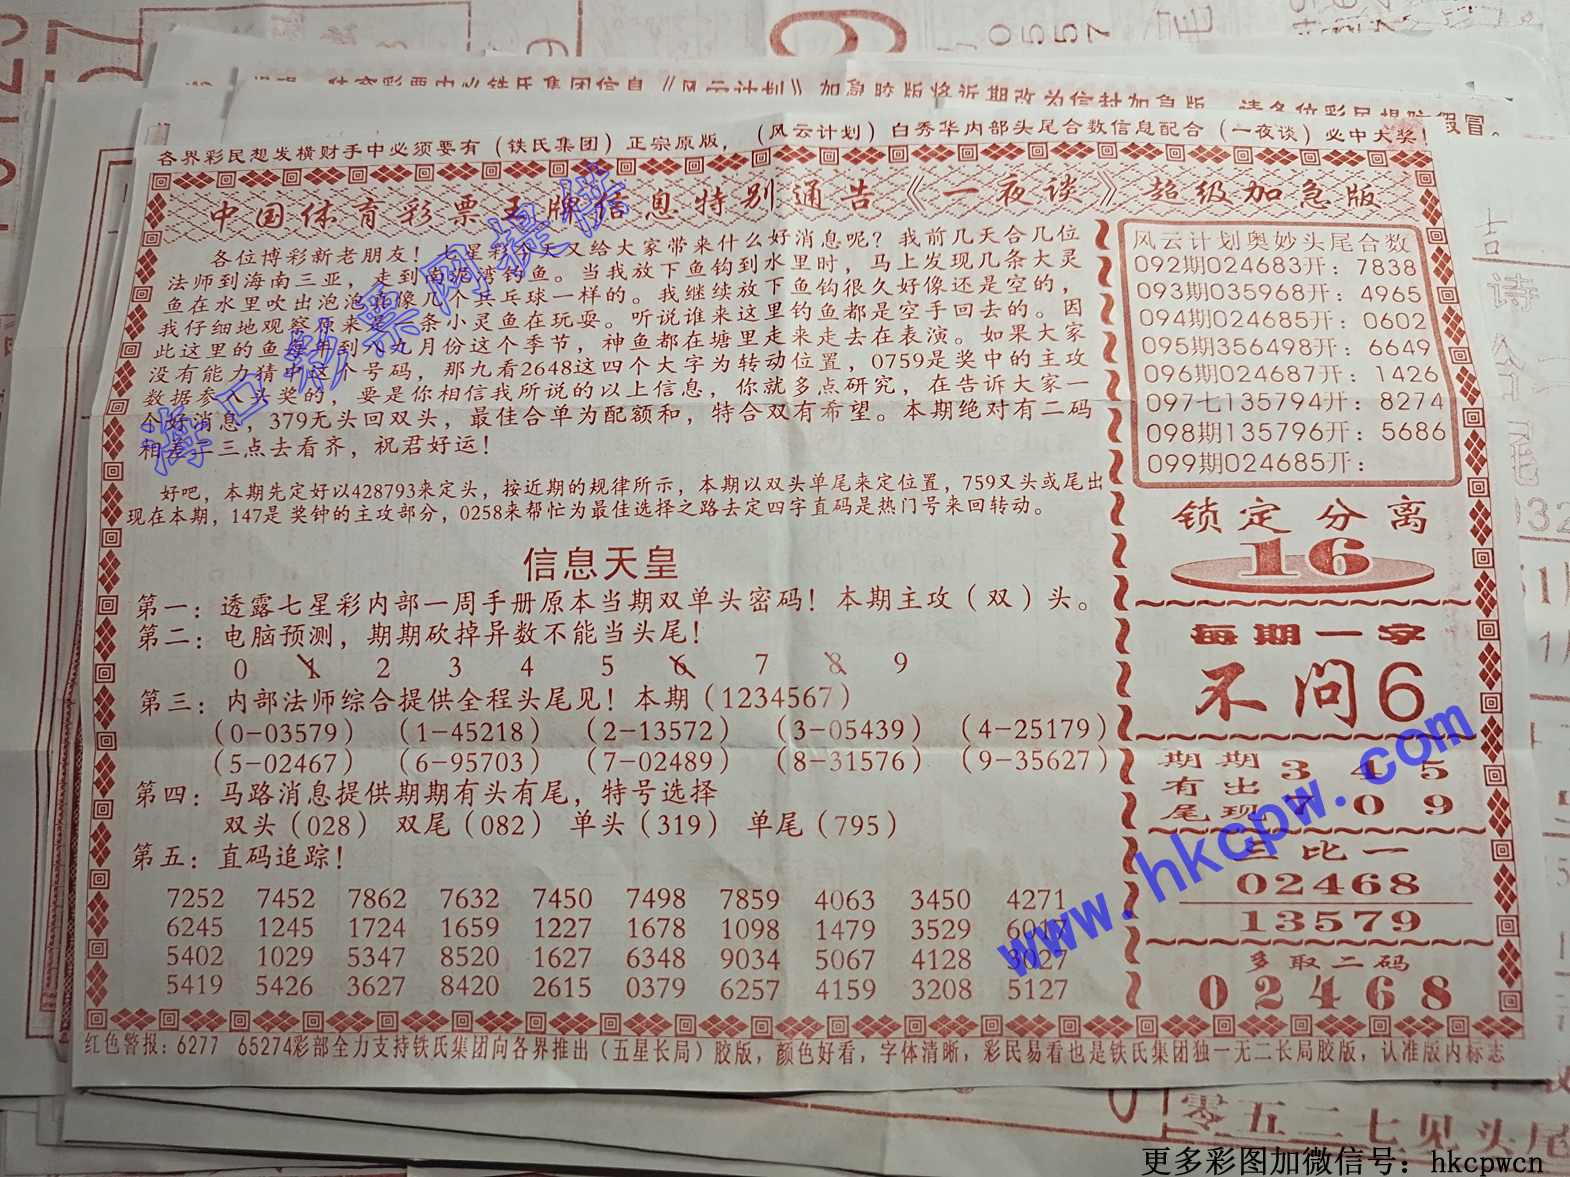 各界彩民想发横财手中必须要有（铁氏集团）正宗原版，（风云计划）白秀华内部头尾合数信息配合（一夜谈）必中大奖！
中国体育彩票王牌信息特别通告《一夜谈》超级加急版
各位博彩新老朋友！七星彩今天又给大家带来什么好消息呢？我前几天合几位
法师到海南三亚，走到 湾钓鱼。当我放下鱼钩到水里时，马上发现几条大灵
鱼在水里吹出泡泡 像几个乒乓球一样的。我继续放下鱼钩很久好像还是空的，
我仔细地观察原来是 条小灵鱼在玩耍。听说谁来这里钓鱼都是空手回去的。因
此这里的鱼每年到 九月份这个季节，神鱼都在塘里走来走去在表演。如果大家
没有能力猜中这个号码，那九看2648这四个大字为转动位置，0759是奖中的主攻
数据参 头奖的，要是你相信我所说的以上信息，你就多点研究，在告诉大家一
个好消息，379无头回双头，最佳合单为配额和，特合双有希望。本期绝对有二码
相差二三点去看齐，祝君好运！
好吧，本期先定好以428793来定头，按近期的规律所示，本期以双头单尾来定位置，759又头或尾出
现在本期，147是 奖钟的主攻部分，0258来帮忙为最佳选择之路去定四字直码是热门号来回转动。
信息天皇
第一：透露七星彩内部一周手册原本当期双单头密码！本期主攻（双）头。
第二：电脑预测，期期砍掉异数不能当头尾！
0 1 2 3 4 5 6 7 8 9
第三：内部法师综合提供全程头尾见！本期（1234567）
（0-03579）（1-45218）（2-13572）（3-05439）（4-25179）
（5-02467）（6-95703）（7-02489）（8-31576）（9-35627）
第四：马路消息提供期期有头有尾，特号选择
双头（028） 双尾（082） 单头（319） 单尾（795）
第五：直码追踪！
7252 7452 7862 7632 7450 7498 7859 4063 3450 4271
6245 1245 1724 1659 1227 1678 1098 1479 3529
5402 1029 5347 8520 1627 6348 9034 5067 4128 3027
5419 5426 3627 8420 2615 0379 6257 4159 3208 5127
风云计划奥妙头尾合数
092期024683开：7838
093期035968开：4965
094期024685开：0602
095期356498开：6649
096期024687开：1426
097七135794开：8274
098期135796开：5686
099期024685开：
锁定分离
16
每期一字
不问6
期期 3 4 5
有出
尾现 7 0 9
三比一
02468
13579
多取二码
02468
红色警报：6277 65274彩部全力支持铁氏集团向各界推出（五星长局）胶版，颜色好看，字体清晰，彩民易看也是铁氏集团独一无二长局胶版，认准版内标志
海口彩票网提供
www.hkcpw.com
零五二七见头尾
更多彩图加微信号：hkcpwcn